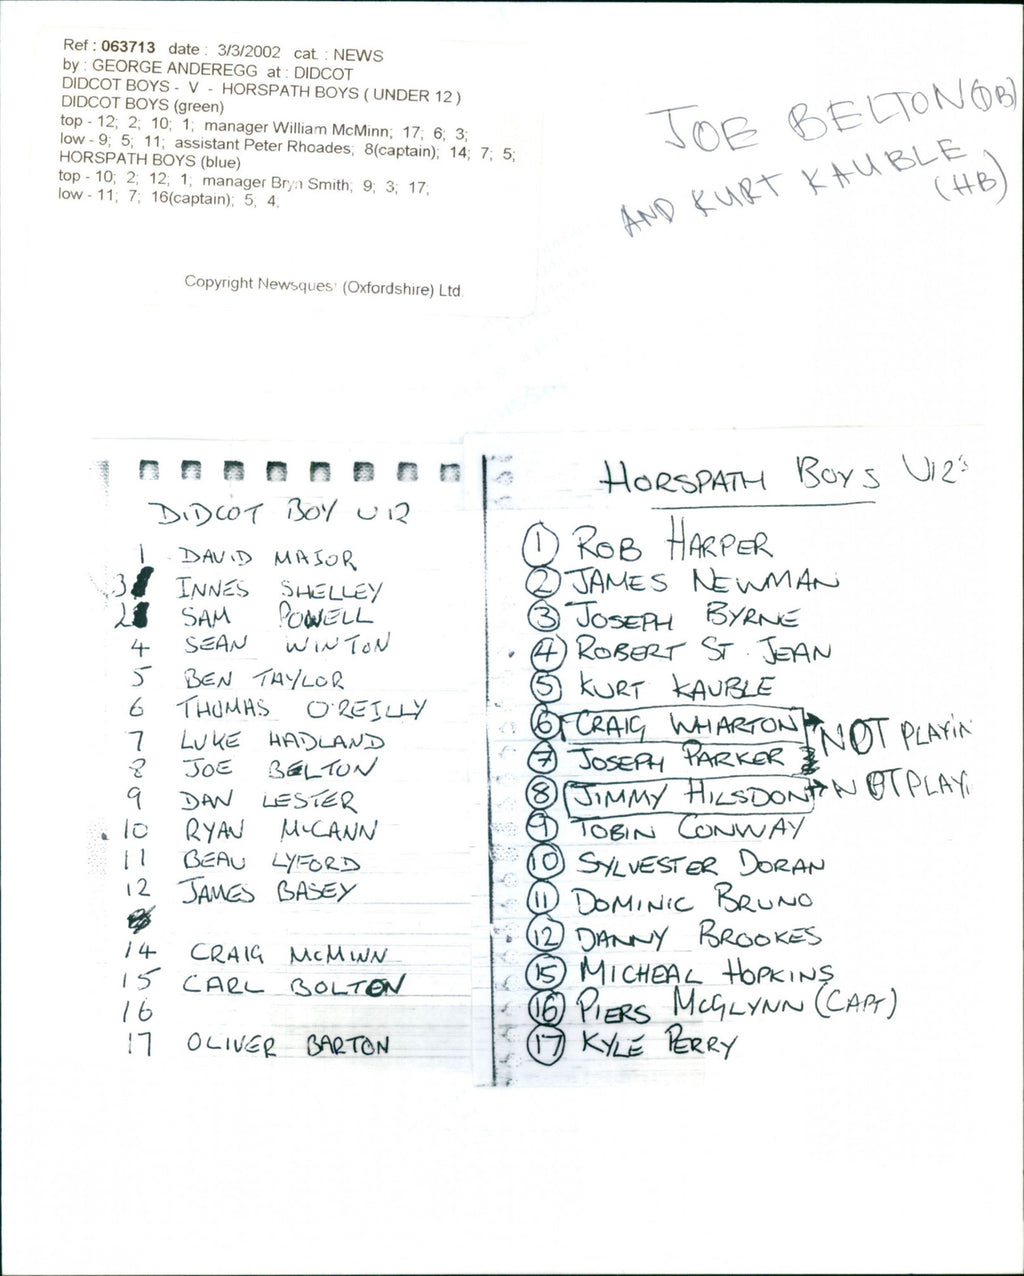 Ref : 063713 date : 3/3/2002 cat. : NEWS
by : GEORGE ANDEREGG at : DIDCOT
DIDCOT BOYS - V - HORSPATH BOYS ( UNDER 12 )
DIDCOT BOYS (green)
top - 12; 2; 10; 1; manager William McMinn; 17; 6; 3;
low - 9; 5; 11; assistant Peter Rhoades; 8(captain); 14; 7; 5;
HORSPATH BOYS (blue)
top - 10; 2; 12; 1; manager Bryn Smith; 9; 3; 17;
low - 11; 7; 16(captain); 5; 4;
Copyright Newsques (Oxfordshire) Ltd.
JOE BELTON (DB)
AND KURT KAUBLE
(HB)
DIDCOT BOY U12
1 DAVID MAJOR
3 INNES SHELLEY
2 SAM POWELL
4 SEAN WINTON
5 BEN TAYLOR
6 THOMAS O'REILLY
7 LUKE HADLAND
8 JOE BELTON
9 DAN LESTER
10 RYAN McCANN
11 BEAU LYFORD
12 JAMES BASEY
14 CRAIG McMINN
15 CARL BOLTON
16
17 OLIVER BARTON
HORSPATH BOYS U12's
1 ROB HARPER
2 JAMES NEWMAN
3 JOSEPH BYRNE
4 ROBERT ST. JEAN
5 KURT KAUBLE
6 CRAIG WHARTON NOT PLAYIN
7 JOSEPH PARKER
8 JIMMY HILSDON NOT PLAYI
9 TOBIN CONWAY
10 SYLVESTER DORAN
11 DOMINIC BRUNO
12 DANNY BROOKES
15 MICHEAL HOPKINS
16 PIERS McGLYNN (CAPT)
17 KYLE PERRY